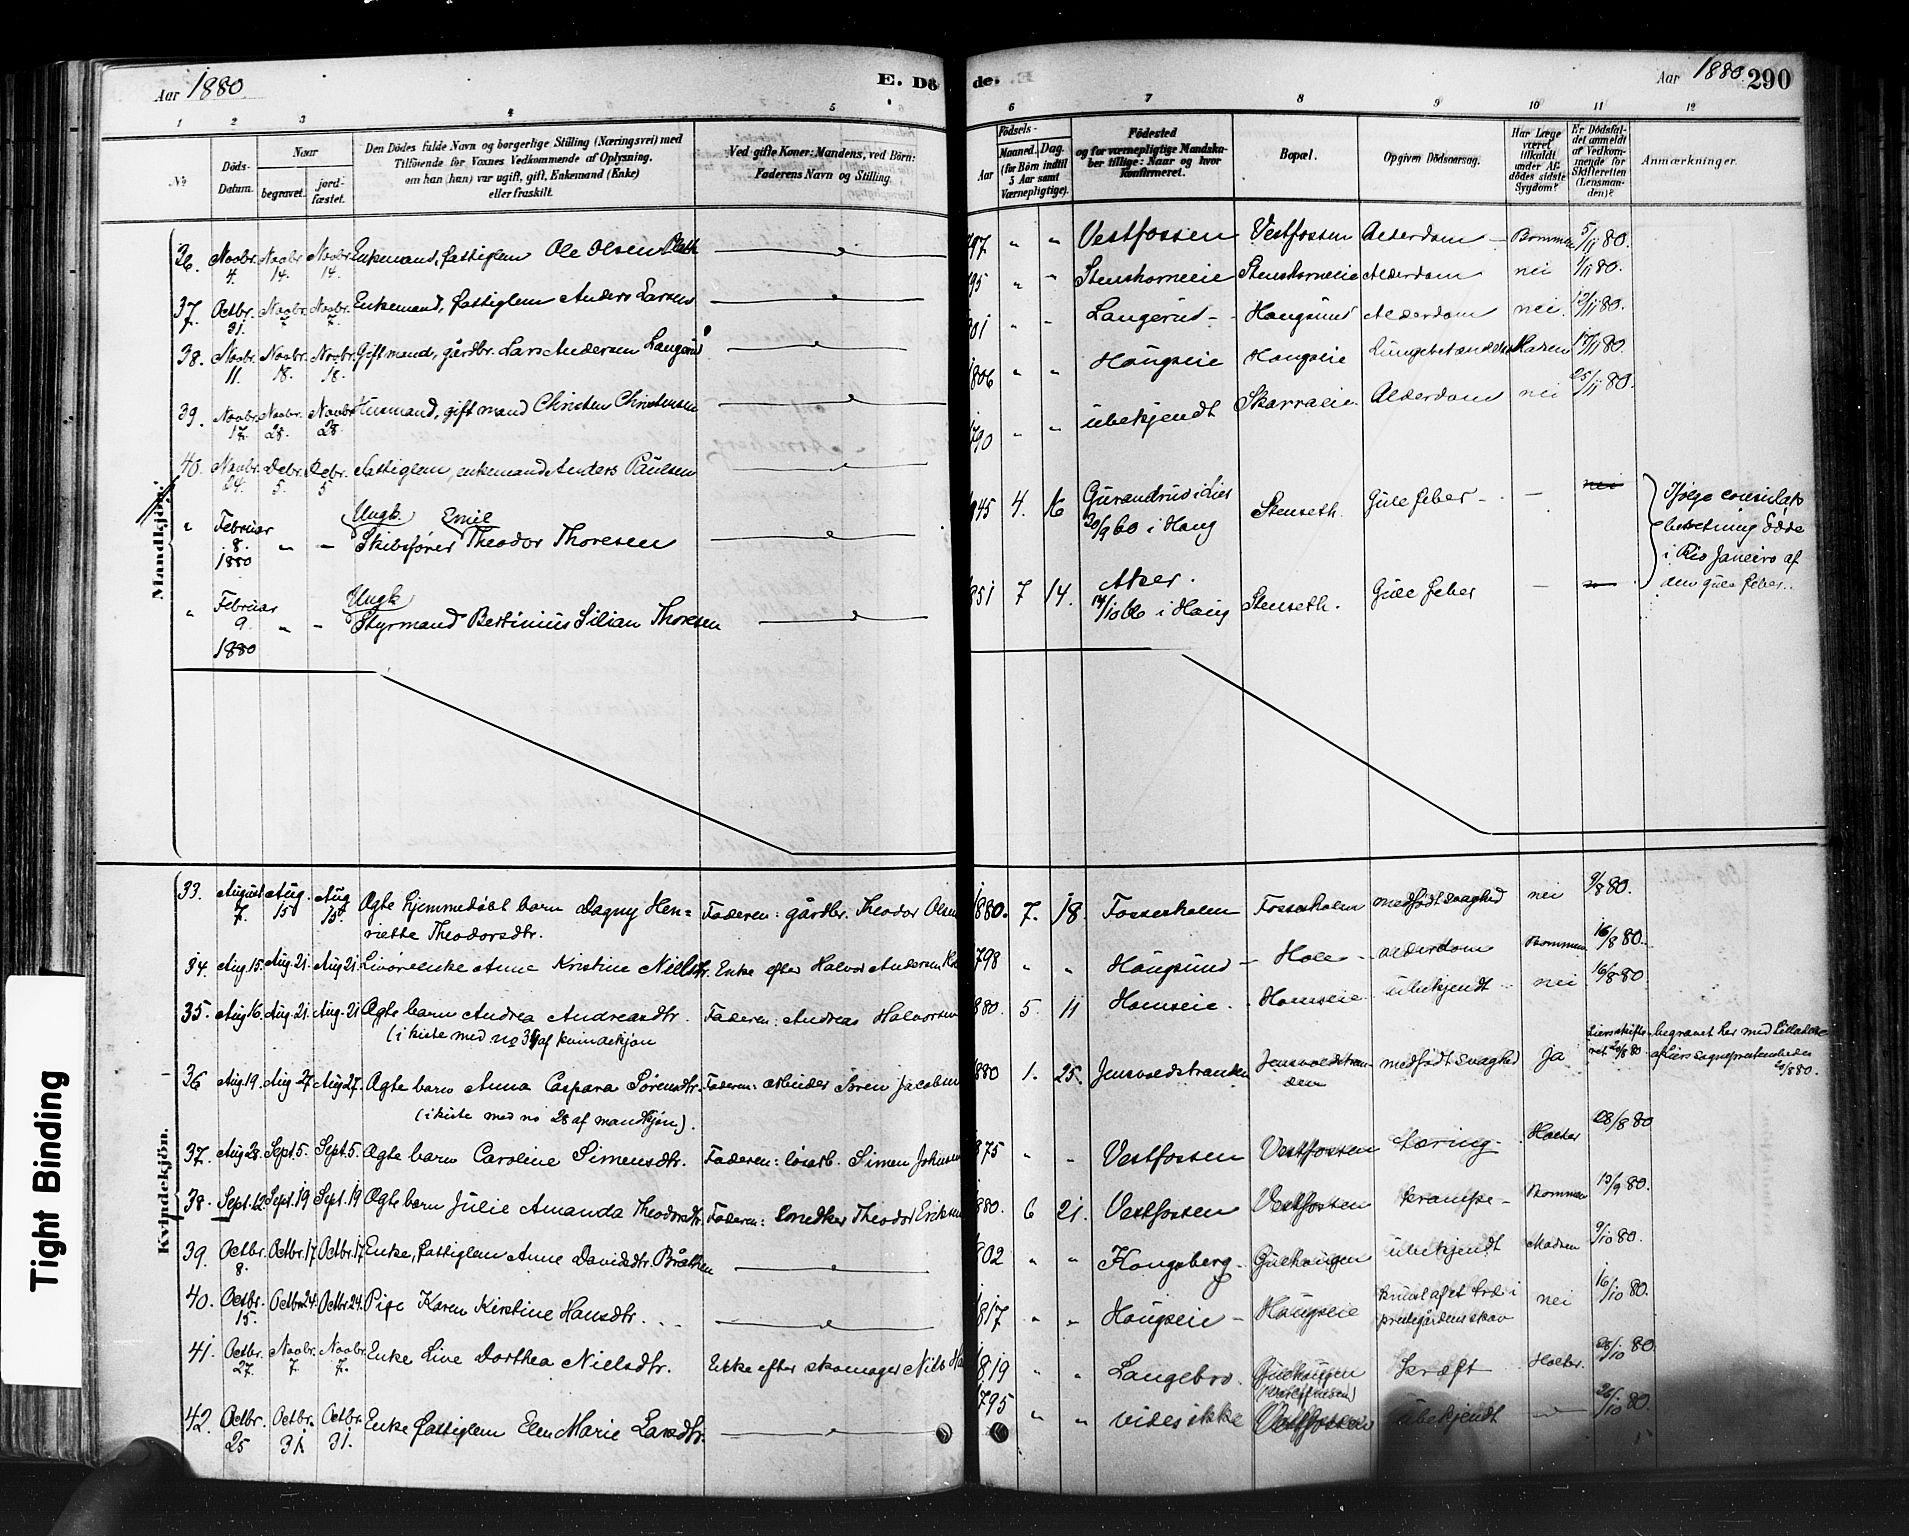 Aar 1880
E. Dö
de.
Aar 1880.
290
1 2 3 4 5 6 7 8 9 10 11 12
№
Döds-Datum.
Naar
begravet.
jord-fæstet.
Den Dödes fulde Navn og borgerlige Stilling (Næringsvei) med
Tilföiende for Voxnes Vedkommende af Oplysning,
om han (hun) var ugift, gift, Enkemand (Enke)
eller fraskilt.
Ved gifte Koner: Mandens, ved Börn:
Faderens Navn og Stilling.
Födsels-
Aar
Maaned.
Dag.
(for Börn indtil
5 Aar samt
Værnepligtige).
Födested
og for værnepligtige Mandska-
ber tillige: Naar og hvor
konfirmeret.
Bopæl.
Opgiven Dödsaarsag.
Har Læge
været
tilkaldt
under Af-
dödes sidste
Sygdom?
Er Dödsfal-
det anmeldt
af Vedkom-
mende for
Skifteretten
(Lensman-
den)?
Anmærkninger.
Mandkjön.
36. Novbr. 4. Novbr 14. Novbr. 14. Enkemand, fattiglem Ole Olsen 797 " " Vestfossen Vestfossen Alderdom - Bommen 5/11 80.
37. Octbr. 31. Novbr. 7 Novbr. 7. Enkemand, fattiglem Anders Larsen 795 " " Stenshorneie Stenshorneie Alderdom nei 1/11 80.
38. Novbr. 11. Novbr. 18. Novbr. 18. Gift mand, gårdbr. Lars Andersen Langerud 801 " " Langerud - Hougsund Alderdom nei. 12/11 80.
39. Novbr. 17. Novbr. 28. Novbr. 28. Husmand, gift mand Christen Christensen 1806 " " Hougseie Hougseie Lungebetændelse 17/11 80.
40. Novbr. 24. Debr. 5. Debr. 5 Fattiglem, enkemand Anders Paulsen 1790 " " ubekjendt Skarraeie Alderdom nei 25/11 80.
" Februar 8. 1880 " - Ungk. Skibsfører Emil Theodor Thoresen 1845 4. 16 i Lier 20/9 60 i Houg Stenseth. Gule feber - - nei Ifølge consulats beretning døde i Rio Janeiro af den gule feber.
" Februar 9. 1880 " - Ungk Styrmand Bertinius Silian Thoresen 1851 7 14. Asker. 14/10 66 i Houg Stenseth. Gule feber - n
Kvindekjön.
33. August 7. Aug. 15 Aug 15. Ægte hjemmedøbt barn Dagny Hen=
riette Theodorsdtr. Faderen: gårdbr. Theodor Olsen 1880. 7. 18. Fosserholm Fosserholm medfødt svaghed nei 9/8 80.
34. Aug 15. Aug. 21. Aug 21. Livøreenke Anne Kristine Nielsdtr. Enke efter Halvor Andersen 1798 " " Hougsund - Hole - alderdom Bommen 16/8 80.
35. Aug 16. Aug 21. Aug. 21 Ægte barn Andrea Andreasdtr.
(i kiste med no 34 af kvindekjøn Faderen: Andreas Halvorsen 1880. 5. 11 Homseie. Homseie ubekjendt nei 16/8 80
36 Aug 19. Aug 27 Aug 27. Ægte barn Anna Caspara Sørensdtr.
(i kiste med no 28 af mandkjøn). Faderen: arbeider Søren Jacobsen 1880 1. 25. Jensvoldstranden Jensvoldstranden medfødt svaghed Ja Liers skifteret 20/8 80 begravet her med tilladelse af Liers sognepræstembede 20/8 80.
37. Aug 28. Sept. 5. Sept. 5. Ægte barn Caroline Simensdtr. Faderen: løsarb. Simen Johnsen 1875 " - Vestfossen Vestfossen tæring - Holter 28/8 80
38. Sept. 12. Sept. 19 Sept. 19 Ægte barn Julie Amanda Theodorsdtr. Faderen: snedker Theodor Eriksen 1880. 6 21. Vestfossen Vestfossen krampe - Bommen 13/9 80.
39. Octbr. 8. Octbr. 17. Octbr. 17. Enke, fattiglem Anne Davidsdtr. Bråthen 1802 " " Kongsberg. Gulhougen ubekjendt Madsen 9/10 80.
40. Octbr. 15. Octbr 24. Octbr 24. Pige Karen Kirstine Hansdtr. 1817 " " Hougseie - Hougseie knust af et træ i
prestegårdens skov nei 16/10 80.
41. Octbr. 27. Novbr. 7 Novbr. 7. Enke Live Dorthea Nielsdtr. Enke efter skomager Nils 1819 " " Langebro. Gulhougen
(Vestfossen) kræft Holter. 28/10 80
42. Octbr. 25 Octbr. 31. Octbr. 31. Enke fattiglem Elen Marie Larsdtr. 1795 " " vides ikke Vestfossen ubekjendt - 26/10 80.
Tight Binding